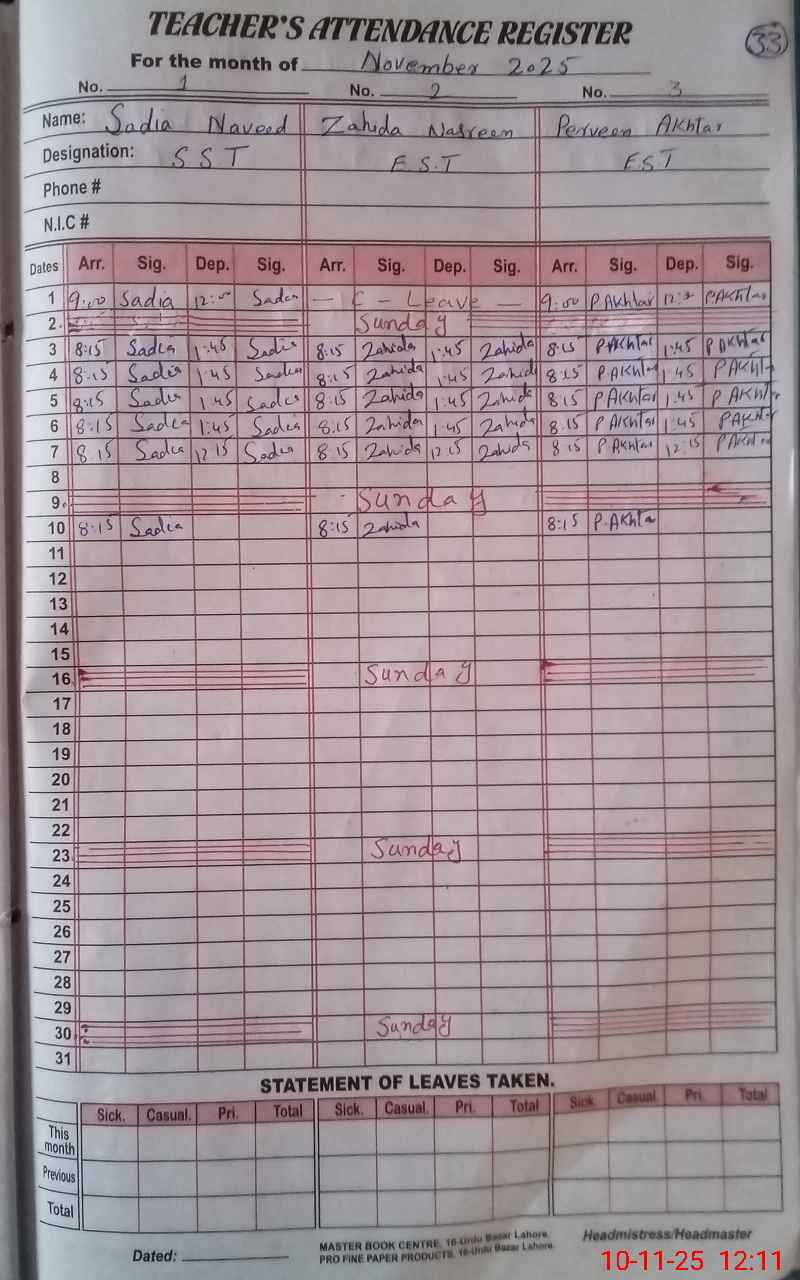 TEACHER'S ATTENDANCE REGISTER
33
For the month of November 2025
No. 1 No. 2 No. 3
Name: Sadia Naveed Zahida Nasreen Perveen Akhtar
Designation: SST E.S.T EST
Phone #
N.I.C #
Dates Arr. Sig. Dep. Sig. Arr. Sig. Dep. Sig. Arr. Sig. Dep. Sig.
1 9:00 Sadia 12:00 Sadia - C - Leave - 9:00 P.Akhtar P.Akhtar
2. Sunday
3 8:15 Sadia 1:45 Sadia 8:15 Zahida 1:45 Zahida 8:15 P.Akhtar 1:45 P.Akhtar
4 8:15 Sadia 1:45 Sadia 8:15 Zahida 1:45 Zahida 8:15 P.Akhtar 1:45 P.Akhtar
5 8:15 Sadia 1:45 Sadia 8:15 Zahida 1:45 Zahida 8:15 P.Akhtar 1:45 P.Akhtar
6 8:15 Sadia 1:45 Sadia 8:15 Zahida 1:45 Zahida 8:15 P.Akhtar 1:45 P.Akhtar
7 8:15 Sadia 12:15 Sadia 8:15 Zahida 12:15 Zahida 8:15 P.Akhtar 12:15 P.Akhtar
8
9. Sunday
10 8:15 Sadia 8:15 Zahida 8:15 P.Akhtar
11
12
13
14
15
16. Sunday
17
18
19
20
21
22
23. Sunday
24
25
26
27
28
29
30 Sunday
31
STATEMENT OF LEAVES TAKEN.
Sick. Casual. Pri. Total Sick. Casual. Pri. Total Sick. Casual. Pri. Total
This month
Previous
Total
Dated: MASTER BOOK CENTRE, 16-Urdu Bazar Lahore. Headmistress/Headmaster
PRO FINE PAPER PRODUCTS, 16-Urdu Bazar Lahore.
10-11-25 12:11